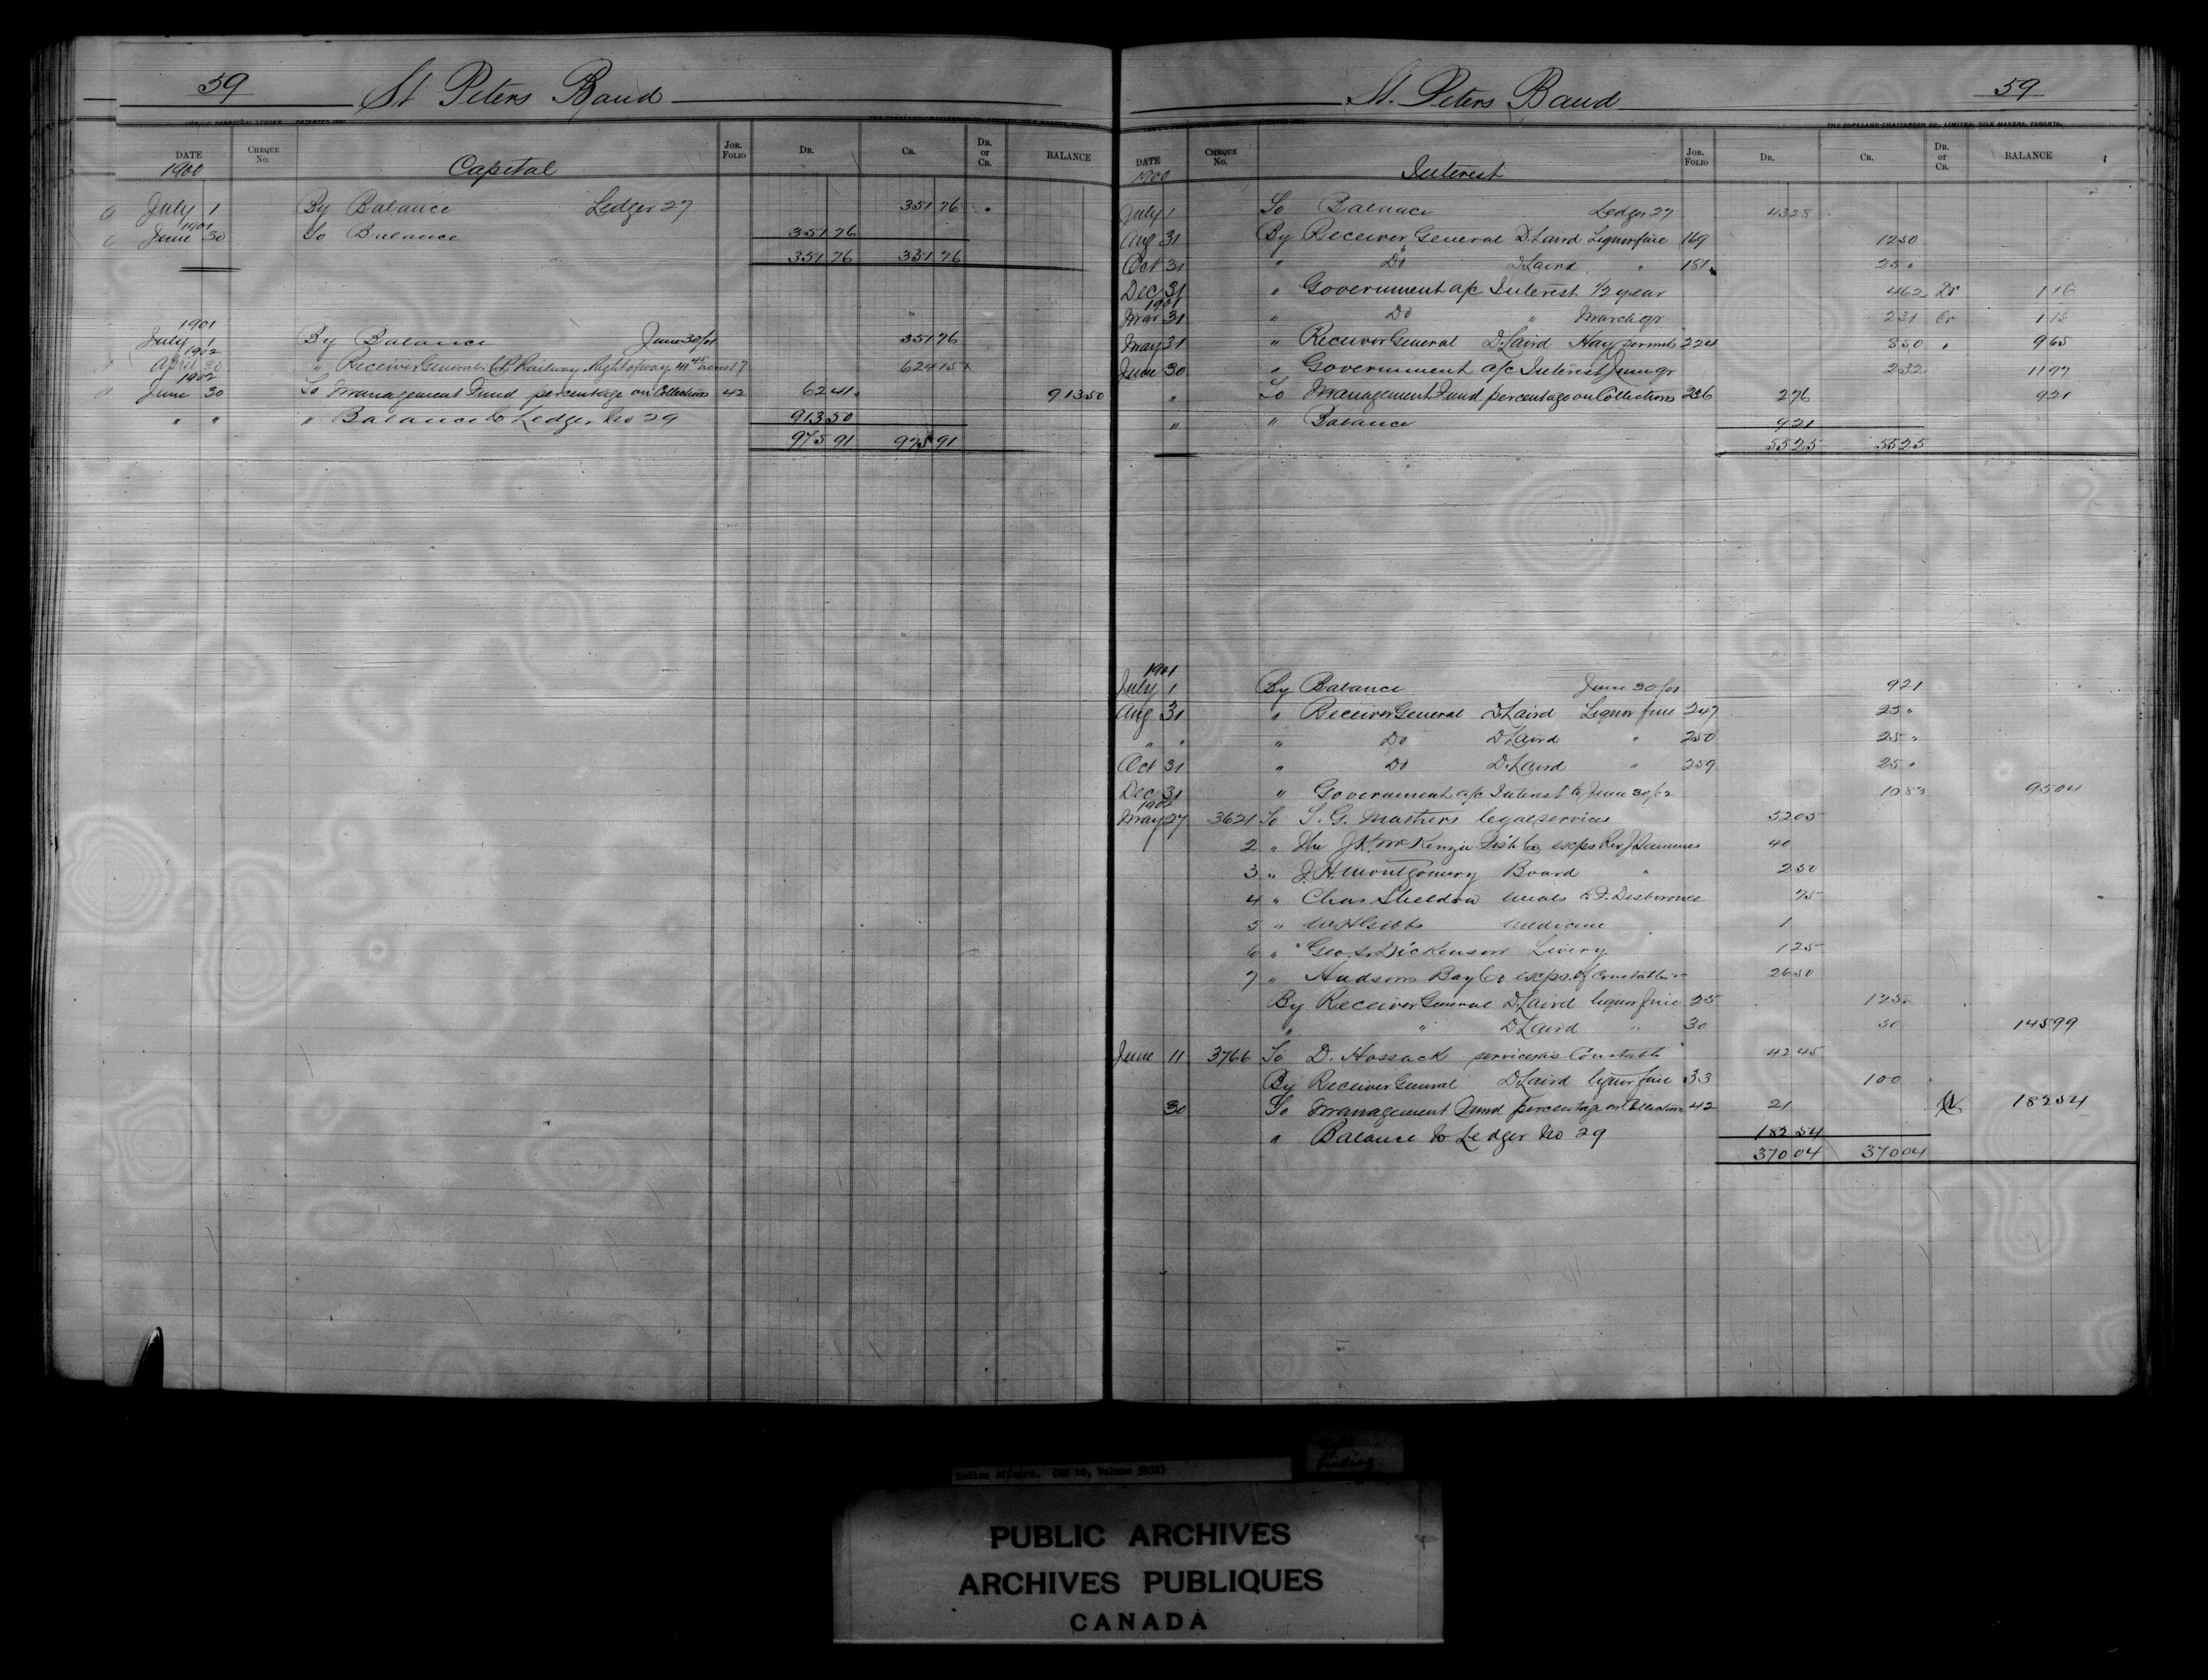 59 St Peters Band
DATE Cheque No. Capital Jor. Folio Dr. Cr. Dr. or Cr. BALANCE
1900
July 1 By Balance Ledger 27 351 76
1901
June 30 To Balance 351 76
351 76 351 76
1901
July 1 By Balance June 30/01 351 76
1902
April 30 " Receiver General C.P. Railway Right of way 41 45 acres 17 624 15
1902
June 30 To Management Fund percentage on Collections 42 62 41 913 50
" " " Balance to Ledger No 29 913 50
975 91 975 91
St. Peters Band 59
THE COPELAND-CHATTERSON CO., LIMITED, SOLE MAKERS, TORONTO.
DATE Cheque No. Interest Jor. Folio Dr. Cr. Dr. or Cr. BALANCE
1900
July 1 To Balance Ledger 27 43 28
Aug 31 By Receiver General D. Laird Liquor fine 169 12 50
Oct 31 " Do D Laird " 181 25 "
Dec 31 " Government a/c Interest 1/2 year 4 62 Dr 1 16
1901
Mar 31 " Do " March qr 2 31 Cr 1 15
May 31 " Receiver General D Laird Hay permits 224 8 50 " 9 65
June 30 " Government a/c Interest June qr 2 32 11 97
" To Management Fund percentage on Collections 236 2 76 9 21
" " Balance 9 21
55 25 55 25
1901
July 1 By Balance June 30/01 9 21
Aug 31 " Receiver General D Laird Liquor fine 247 25 "
" " " Do D Laird " 250 25 "
Oct 31 " Do D. Laird " 259 25 "
Dec 31 " Government a/c Interest to June 30/02 10 83 95 04
1902
May 27 3621 To S. G. Mathers legal services 52 05
2 " The J K McKenzie Fish Co exps Rev J 40
3 " J. H. Montgomery Board " 2 50
4 " Chas Sheldon meals 75
5 " W H Gibbs Medicine 1
6 " Geo. S. Dickenson Livery 1 25
7 " Hudsons Bay Co exps. of Constable 26 50
By Receiver General D. Laird liquor fine 25 125
" " D Laird " 30 50 145 99
June 11 3766 To D. Hossack services as Constable 42 45
By Receiver General D Laird liquor fine 33 100
30 To Management Fund percentage on Collections 42 21 Cr 182 54
" Balance to Ledger No 29 182 54
370 04 370 04
Indian Affairs. (RG 10, Volume 5932)
PUBLIC ARCHIVES
ARCHIVES PUBLIQUES
CANADA